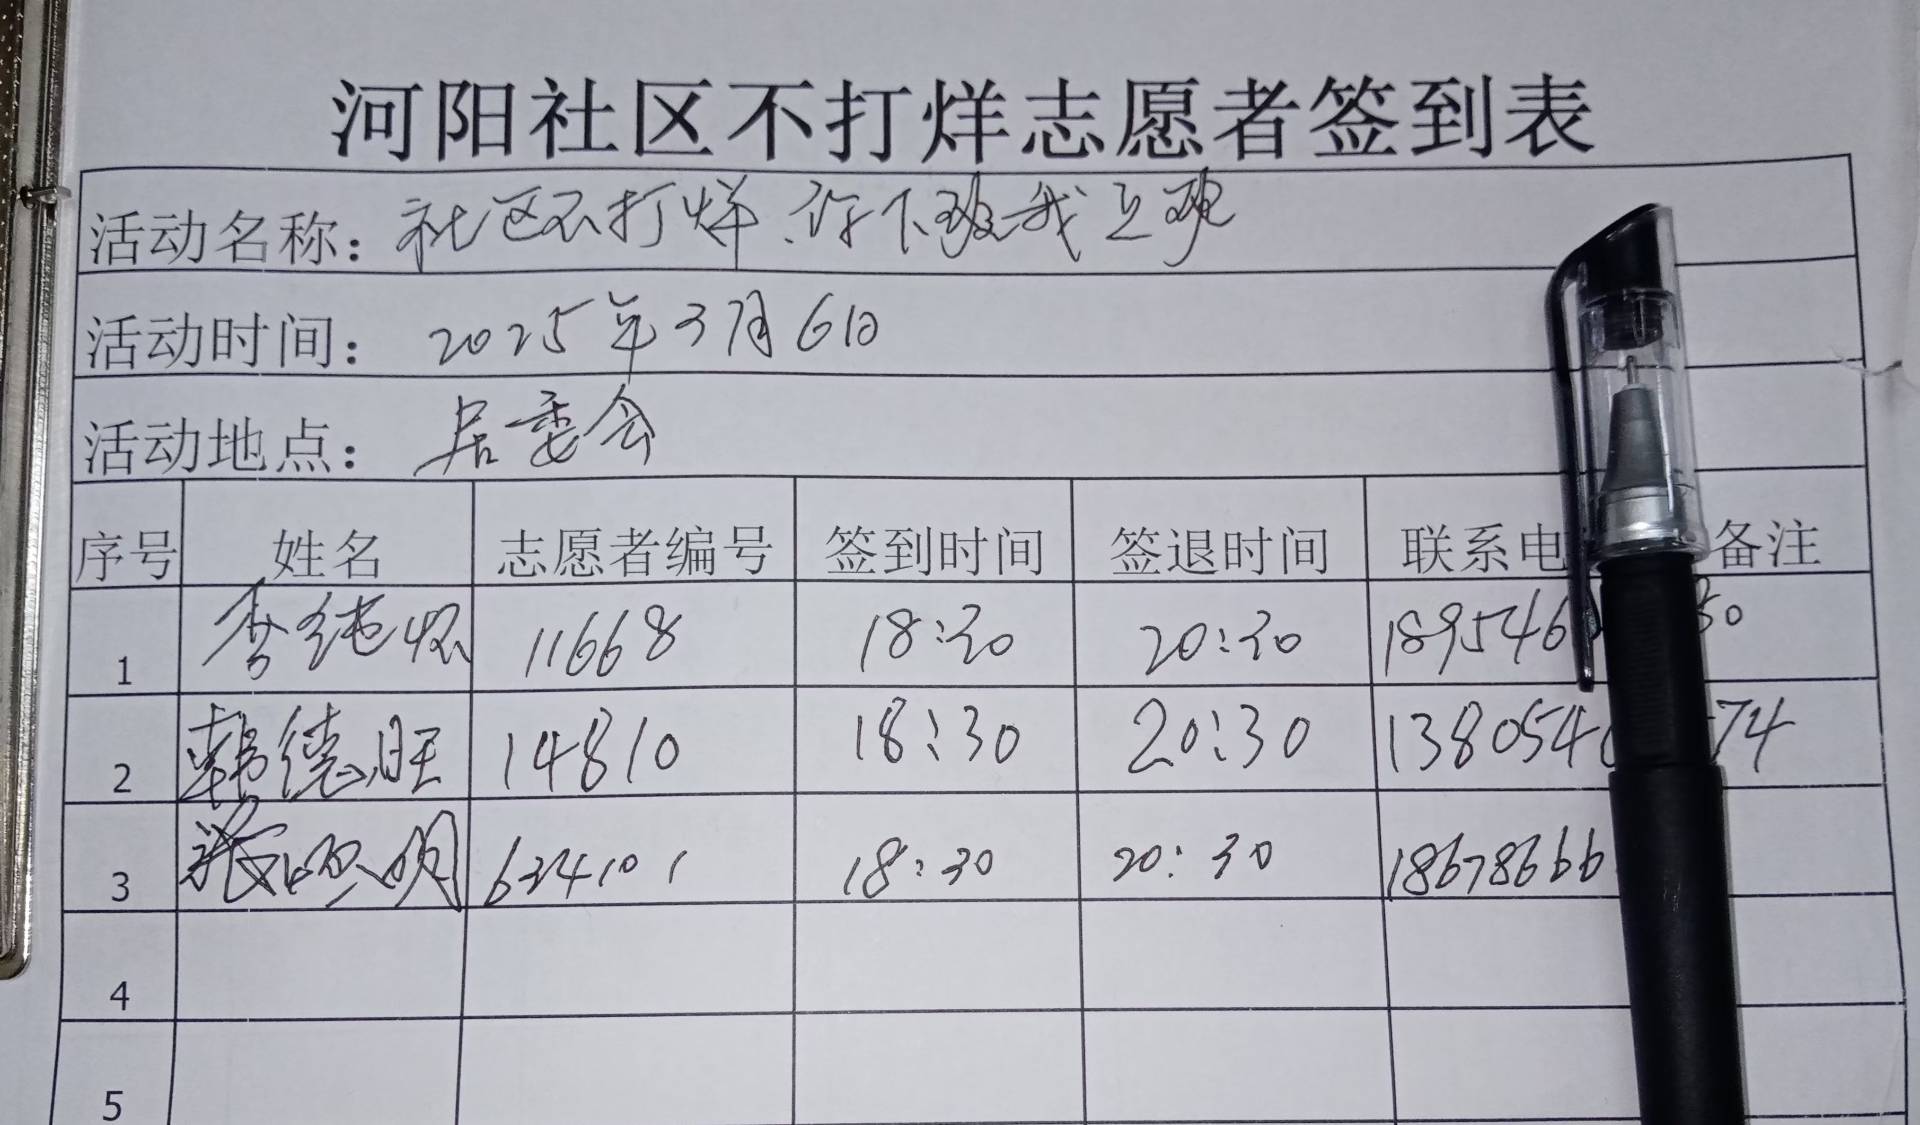 河阳社区不打烊志愿者签到表
活动名称：社区不打烊、你下班我上班
活动时间：2025年3月6日
活动地点：居委会
序号 姓名 志愿者编号 签到时间 签退时间 联系电 备注
1 李纯怀 11668 18:30 20:30 189546 30
2 韩德旺 14810 18:30 20:30 1380546 74
3 张照明 634101 18:30 20:30 18678666
4
5